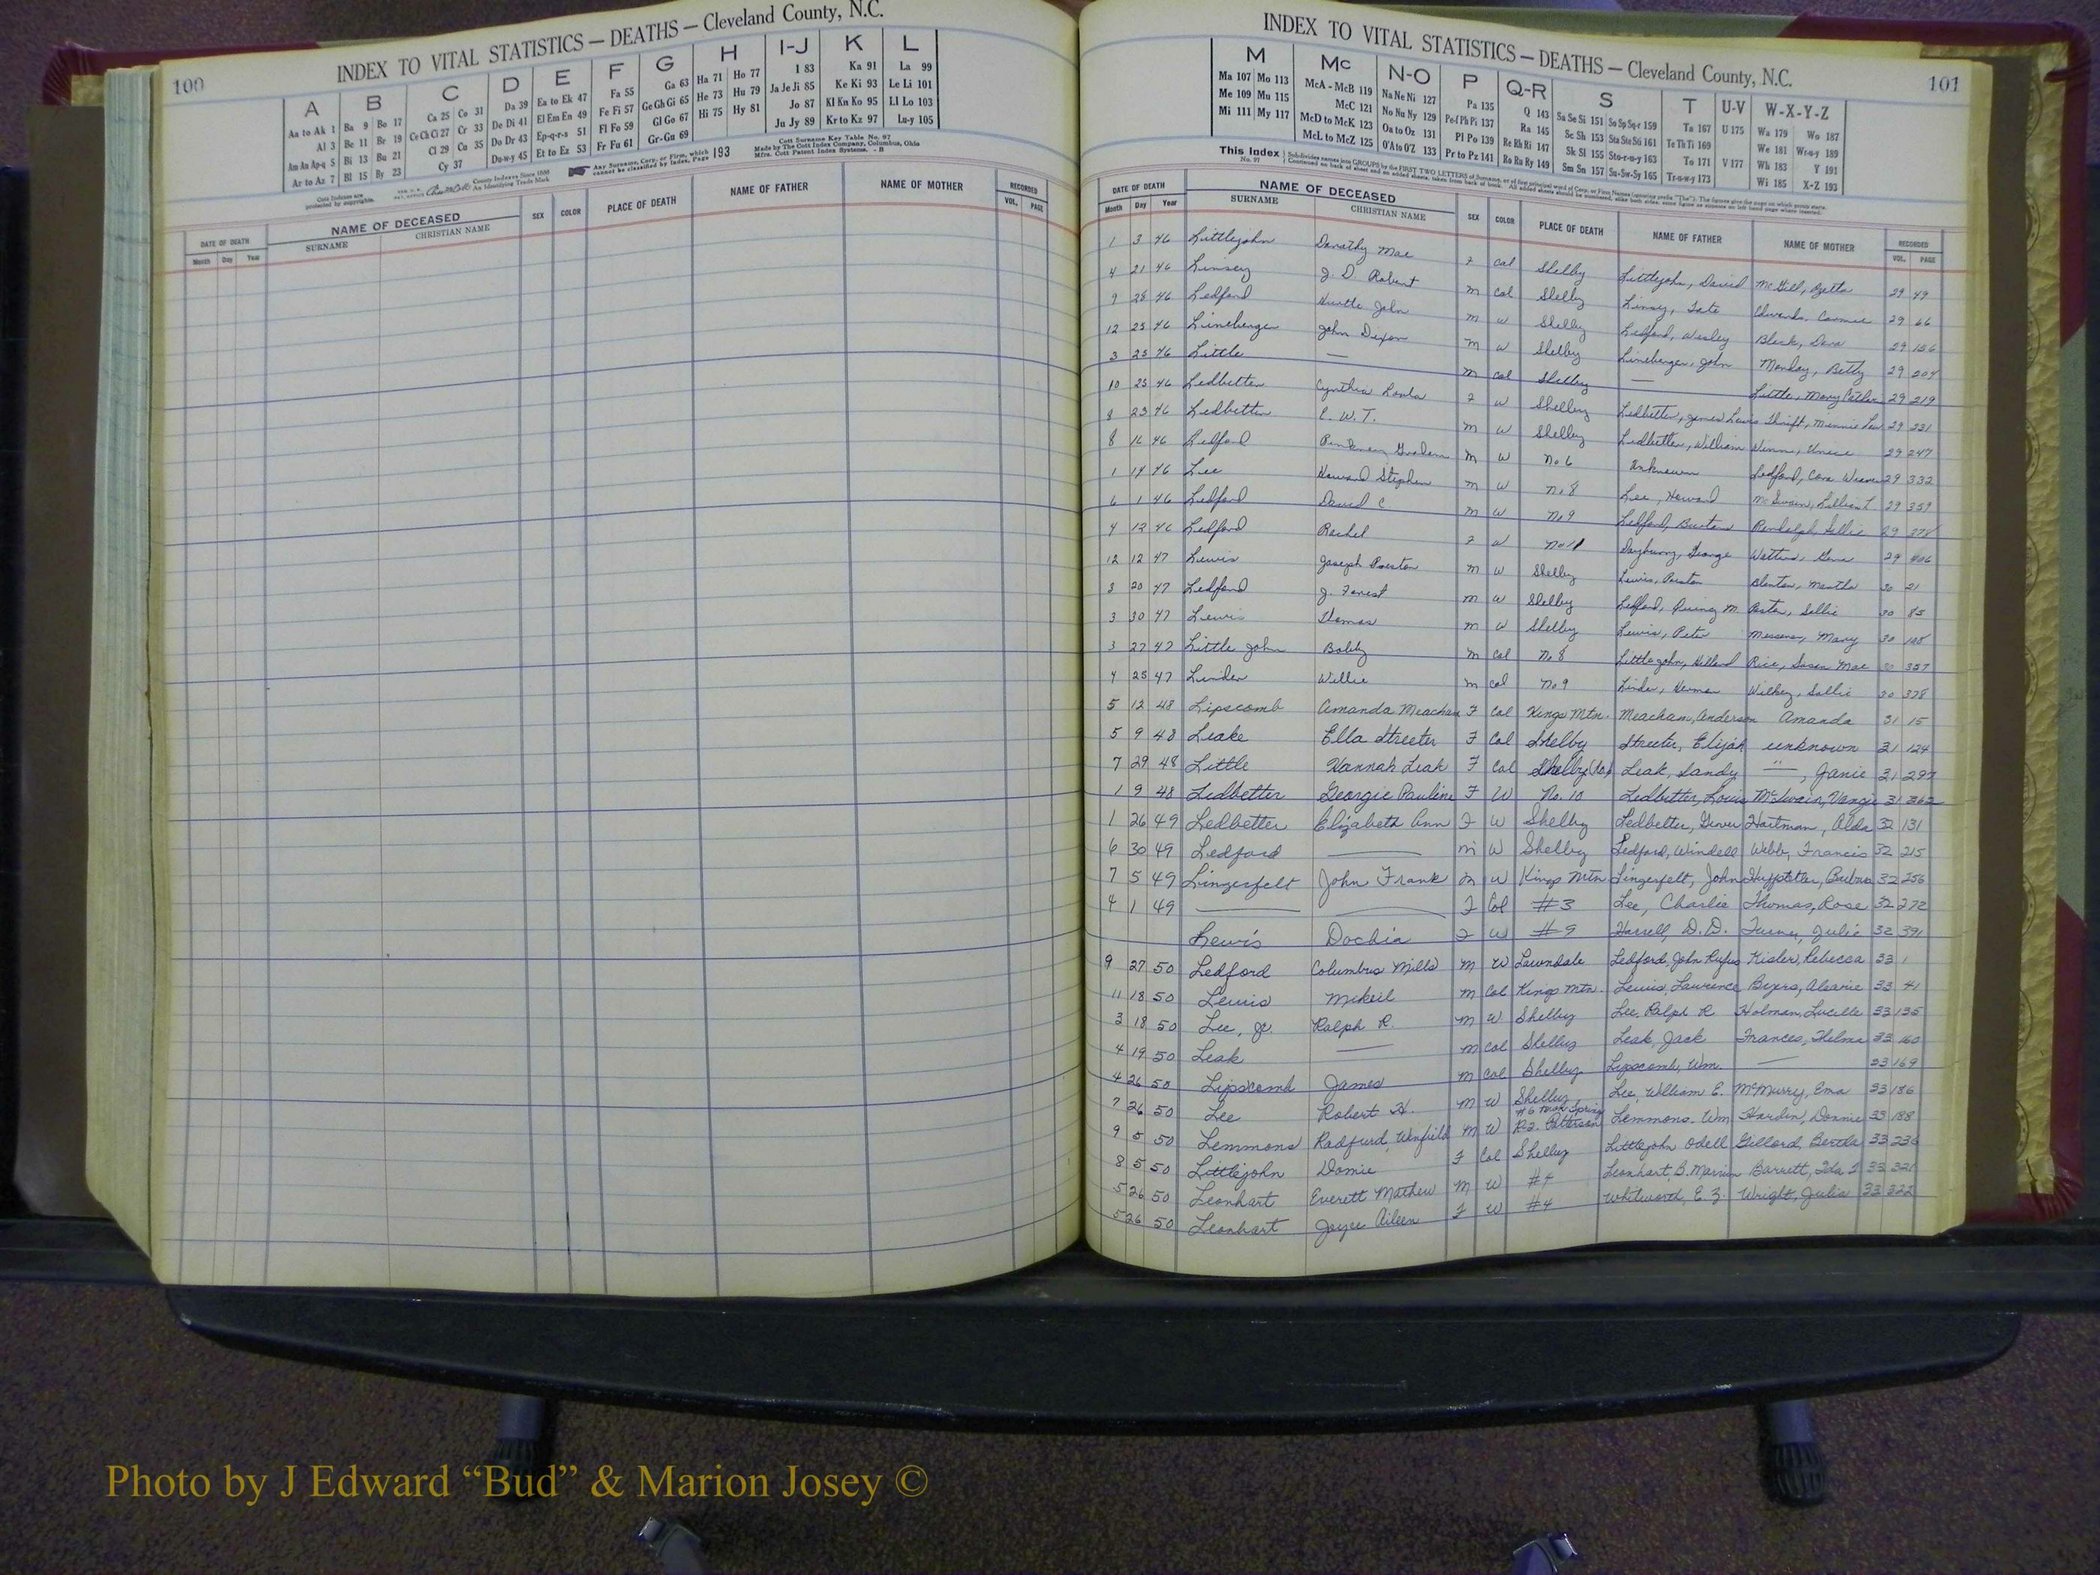 100
INDEX TO VITAL STATISTICS — DEATHS — Cleveland County, N.C.
A B C D E F G H I-J K L
Aa to Ak 1 Ba 9 Bo 17 Ca 25 Co 31 Da 39 Ea to Ek 47 Fa 55 Ga 63 Ha 71 Ho 77 I 83 Ka 91 La 99
Al 3 Be 11 Br 19 Ce Ch Ci 27 Cr 33 De Di 41 El Em En 49 Fe Fi 57 Ge Gh Gi 65 He 73 Hu 79 Ja Je Ji 85 Ke Ki 93 Le Li 101
Am An Ap-q 5 Bi 13 Bu 21 Cl 29 Cu 35 Do Dr 43 Ep-q-r-s 51 Fl Fo 59 Gl Go 67 Hi 75 Hy 81 Jo 87 Kl Kn Ko 95 Ll Lo 103
Ar to Az 7 Bl 15 By 23 Cy 37 Du-w-y 45 Et to Ez 53 Fr Fu 61 Gr-Gu 69 Ju Jy 89 Kr to Kz 97 Lu-y 105
Any Surname, Corp. or Firm, which cannot be classified by Index, Page 193
Cott Surname Key Table No. 97
Made by The Cott Index Company, Columbus, Ohio
DATE OF DEATH NAME OF DECEASED SEX COLOR PLACE OF DEATH NAME OF FATHER NAME OF MOTHER RECORDED
Month Day Year SURNAME CHRISTIAN NAME VOL. PAGE
101
INDEX TO VITAL STATISTICS — DEATHS — Cleveland County, N.C.
M Mc N-O P Q-R S T U-V W-X-Y-Z
Ma 107 Mo 113 McA - McB 119 Na Ne Ni 127 Pa 135 Q 143 Sa Se Si 151 So Sp Sq-r 159 Ta 167 U 175 Wa 179 Wo 187
Me 109 Mu 115 McC 121 No Nu Ny 129 Pe-f Ph Pi 137 Ra 145 Sc Sh 153 Sta Ste Sti 161 Te Th Ti 169 We 181 Wr-u-y 189
Mi 111 My 117 McD to McK 123 Oa to Oz 131 Pl Po 139 Re Rh Ri 147 Sk Sl 155 Sto-r-u-y 163 To 171 V 177 Wh 183 Y 191
McL to McZ 125 O'A to O'Z 133 Pr to Pz 141 Ro Ru Ry 149 Sm Sn 157 Su-Sw-Sy 165 Tr-u-w-y 173 Wi 185 X-Z 193
This Index No. 97
DATE OF DEATH NAME OF DECEASED SEX COLOR PLACE OF DEATH NAME OF FATHER NAME OF MOTHER RECORDED
Month Day Year SURNAME CHRISTIAN NAME VOL. PAGE
1 3 46 Littlejohn Dorathy Mae F Col Shelby Littlejohn, David McGill, Zetta 29 49
4 21 46 Linsey J. D. Robert M Col Shelby Linsy, Tate Edwards, Connie 29 66
9 28 46 Ledford Hustle John M W Shelby Ledford, Wesley Black, Dora 29 156
12 25 46 Lineberger John Dixon M W Shelby Lineberger, John Monday, Betty 29 204
3 25 46 Little — M Col Shelby — Little, Mary Cather 29 219
10 25 46 Ledbetter Cynthia Loula F W Shelby Ledbetter, James Lewis Thrift, Minnie Lee 29 231
8 23 46 Ledbetter E. W. T. M W Shelby Ledbetter, William 29 247
8 16 46 Ledford Pinkney Graham M W No 6 Unknown Ledford, Cora Weaver 29 332
1 14 46 Lee Howard Stephen M W No 8 Lee, Howard McSwain, Lillian L 29 359
6 1 46 Ledford David C M W No 9 Ledford, Burton Randolph, Sallie 29 378
4 12 46 Ledford Rachel F W No 11 George 29 406
12 12 47 Lewis Joseph Preston M W Shelby Lewis, Preston Blanton, Martha 30 21
3 20 47 Ledford J. Forest M W Shelby Ledford, Quincy M Sallie 30 85
3 30 47 Lewis Thomas M W Shelby Lewis, Peter Mary 30 108
3 27 47 Little John Bobby M Col No 8 Littlejohn, Hilland Rice, Susan Mae 30 357
4 25 47 Linder Willie M Col No 9 Linder, Herman Wilkey, Sallie 30 378
5 12 48 Lipscomb Amanda Meacham F Col Kings Mtn. Meacham, Anderson Amanda 31 15
5 9 48 Leake Ella Streeter F Col Shelby Streeter, Elijah unknown 31 124
7 29 48 Little Hannah Leak F Col Shelby Leak, Sandy " , Janie 31 297
1 9 48 Ledbetter Georgie Pauline F W No. 10 Ledbetter, Louis McSwain, Vangie 31 362
1 26 49 Ledbetter Elizabeth Ann F W Shelby Ledbetter, Grover Hartman, Alda 32 131
6 30 49 Ledford — M W Shelby Ledford, Windell Webb, Francis 32 215
7 5 49 Lingerfelt John Frank M W Kings Mtn Lingerfelt, John Huffstetler, Barbra 32 256
4 1 49 — — F Col #3 Lee, Charlie Thomas, Rose 32 272
Lewis Dochia F W #9 Harrell, D. D. Turner, Julie 32 391
9 27 50 Ledford Columbus Mills M W Lawndale Ledford, John Rufus Kisler, Rebecca 33 1
11 18 50 Lewis Mikeil M Col Kings Mtn. Lewis, Lawrence Byers, Alsarie 33 41
3 18 50 Lee, Jr. Ralph R. M W Shelby Lee, Ralph R Holman, Lucille 33 135
4 19 50 Leak — M Col Shelby Leak, Jack Frances, Thelma 33 160
4 26 50 Lipscomb James M Col Shelby Lipscomb, Wm. — 33 169
7 26 50 Lee Robert H. M W Shelby Lee, William E. McMurry, Ema 33 186
9 5 50 Lemmons Radfurd Winfield M W R2. Patterson Lemmons. Wm Hardin, Donnie 33 188
8 5 50 Littlejohn Domie F Col Shelby Littlejohn Odell Gillard, Bertha 33 236
5 26 50 Leonhart Everett Mathew M W #4 Leonhart, B. Marvin Barrett, Ida I 33 321
5 26 50 Leonhart Joyce Aileen F W #4 Whitworth, E. Z. Wright, Julia 33 322
Photo by J Edward “Bud” & Marion Josey ©